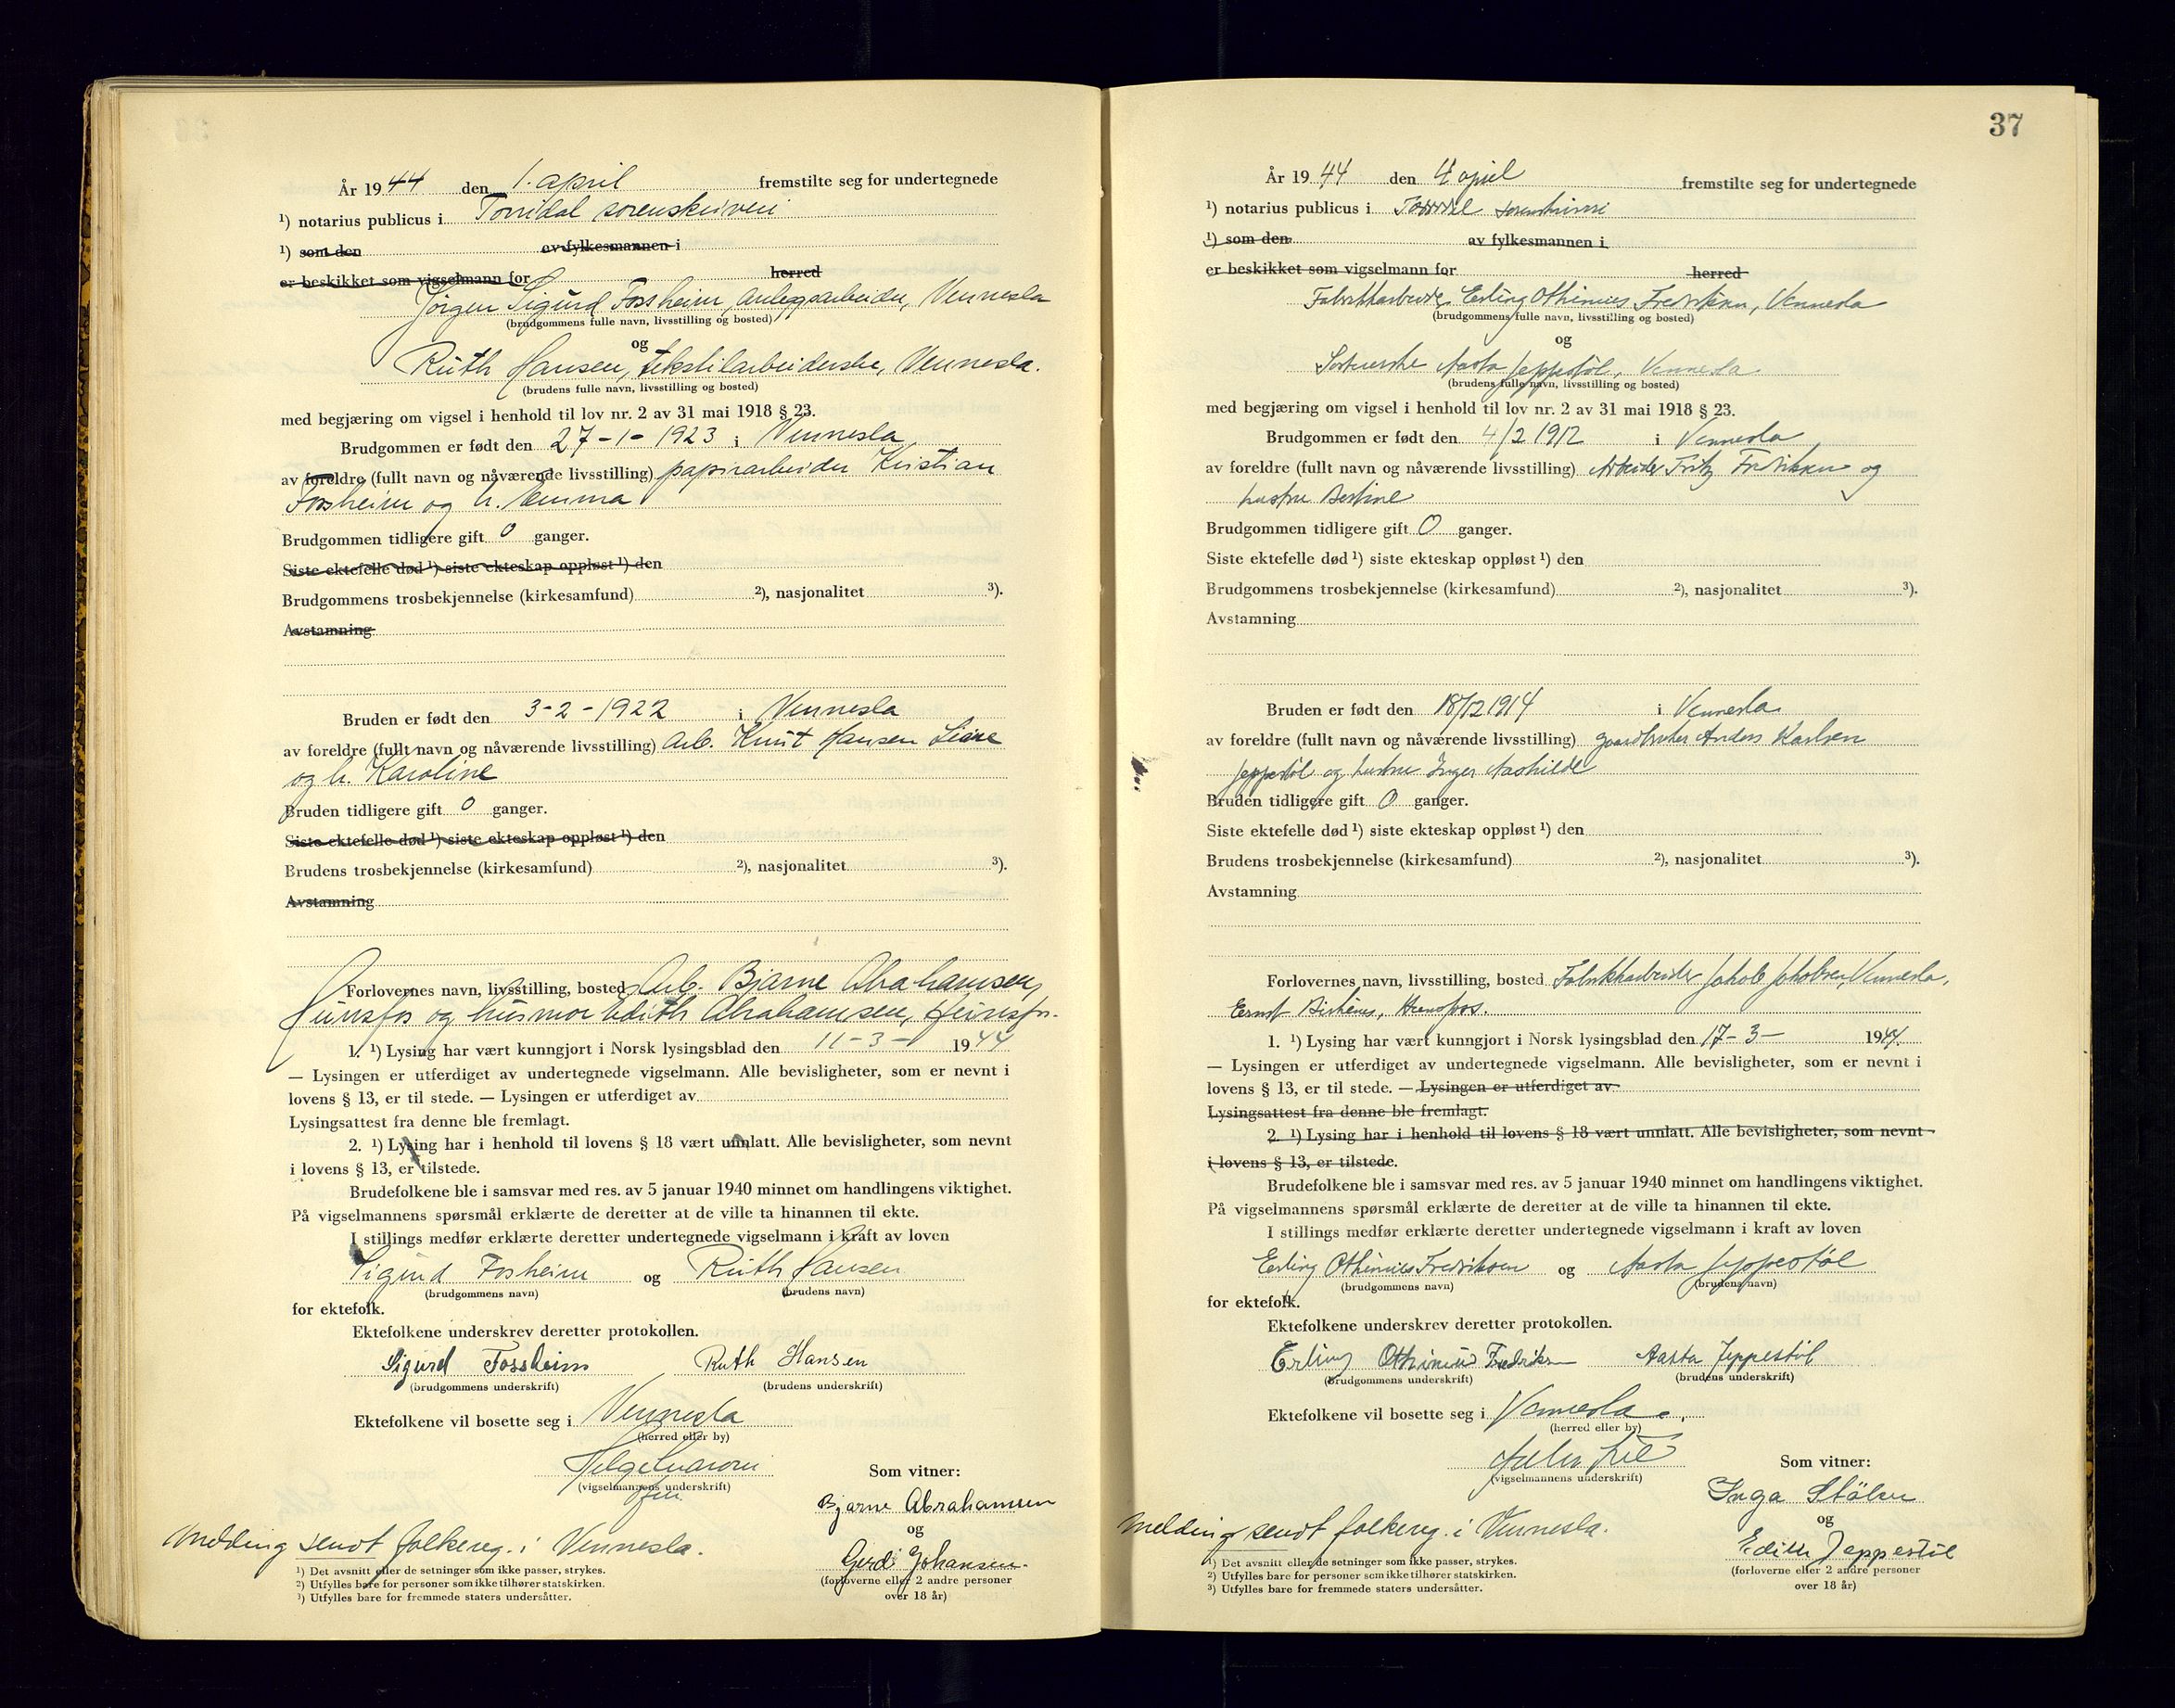 År 1944 den 1. april fremstilte seg for undertegnede
¹) notarius publicus i Torridal sorenskriveri
¹) som den av fylkesmannen i
er beskikket som vigselmann for herred
Jörgen Sigurd Fossheim, anleggsarbeider, Vennesla
(brudgommens fulle navn, livsstilling og bosted)
og
Ruth Hansen, tekstilarbeiderske, Vennesla.
(brudens fulle navn, livsstilling og bosted)
med begjæring om vigsel i henhold til lov nr. 2 av 31 mai 1918 § 23.
Brudgommen er født den 27-1-1923 i Vennesla
av foreldre (fullt navn og nåværende livsstilling) papirarbeider Kristian
Fossheim og h. Emma
Brudgommen tidligere gift 0 ganger.
Siste ektefelle død ¹) siste ekteskap oppløst ¹) den
Brudgommens trosbekjennelse (kirkesamfund) ²), nasjonalitet ³).
Avstamning
Bruden er født den 3-2-1922 i Vennesla
av foreldre (fullt navn og nåværende livsstilling) Arb. Knut Hansen Liane
og h. Karoline
Bruden tidligere gift 0 ganger.
Siste ektefelle død ¹) siste ekteskap oppløst ¹) den
Brudens trosbekjennelse (kirkesamfund) ²), nasjonalitet ³).
Avstamning
Forlovernes navn, livsstilling, bosted Arb. Bjarne Abrahamsen,
Hunsfos og husmor Edith Abrahamsen, Hunsfos.
1. ¹) Lysing har vært kunngjort i Norsk lysingsblad den 11-3- 1944
— Lysingen er utferdiget av undertegnede vigselmann. Alle bevisligheter, som er nevnt i
lovens § 13, er til stede. — Lysingen er utferdiget av
Lysingsattest fra denne ble fremlagt.
2. ¹) Lysing har i henhold til lovens § 18 vært unnlatt. Alle bevisligheter, som nevnt
i lovens § 13, er tilstede.
Brudefolkene ble i samsvar med res. av 5 januar 1940 minnet om handlingens viktighet.
På vigselmannens spørsmål erklærte de deretter at de ville ta hinannen til ekte.
I stillings medfør erklærte deretter undertegnede vigselmann i kraft av loven
Sigurd Fosheim og Ruth Hansen
(brudgommens navn) (brudens navn)
for ektefolk.
Ektefolkene underskrev deretter protokollen.
Sigurd Fossheim Ruth Hansen
(brudgommens underskrift) (brudens underskrift)
Ektefolkene vil bosette seg i Vennesla
(herred eller by)
(vigselmannens underskrift)
Som vitner:
Bjarne Abrahamsen
og
Gerd Johansen
(forloverne eller 2 andre personer
over 18 år)
Melding sendt folkereg. i Vennesla.
¹) Det avsnitt eller de setninger som ikke passer, strykes.
²) Utfylles bare for personer som ikke tilhører statskirken.
³) Utfylles bare for fremmede staters undersåtter.
37
År 1944 den 4 april fremstilte seg for undertegnede
¹) notarius publicus i Torridal sorenskriveri
¹) som den av fylkesmannen i
er beskikket som vigselmann for herred
Fabrikkarbeider Erling Othinius Fredriksen, Vennesla
(brudgommens fulle navn, livsstilling og bosted)
og
Aasta Jeppestøl, Vennesla
(brudens fulle navn, livsstilling og bosted)
med begjæring om vigsel i henhold til lov nr. 2 av 31 mai 1918 § 23.
Brudgommen er født den 4/2 1912 i Vennesla
av foreldre (fullt navn og nåværende livsstilling) Arbeider Fritz Fredriksen og
hustru Bertine
Brudgommen tidligere gift 0 ganger.
Siste ektefelle død ¹) siste ekteskap oppløst ¹) den
Brudgommens trosbekjennelse (kirkesamfund) ²), nasjonalitet ³).
Avstamning
Bruden er født den 18/12 1914 i Vennesla
av foreldre (fullt navn og nåværende livsstilling) gaardbruker Anders Karlsen
Jeppestøl og hustru Inger Aashilde
Bruden tidligere gift 0 ganger.
Siste ektefelle død ¹) siste ekteskap oppløst ¹) den
Brudens trosbekjennelse (kirkesamfund) ²), nasjonalitet ³).
Avstamning
Forlovernes navn, livsstilling, bosted Fabrikkarbeider Jakob Jakobsen, Vennesla,
Ernst Birkenes, Hunsfos.
1. ¹) Lysing har vært kunngjort i Norsk lysingsblad den 17-3- 1944.
— Lysingen er utferdiget av undertegnede vigselmann. Alle bevisligheter, som er nevnt i
lovens § 13, er til stede. — Lysingen er utferdiget av
Lysingsattest fra denne ble fremlagt.
2. ¹) Lysing har i henhold til lovens § 18 vært unnlatt. Alle bevisligheter, som nevnt
i lovens § 13, er tilstede.
Brudefolkene ble i samsvar med res. av 5 januar 1940 minnet om handlingens viktighet.
På vigselmannens spørsmål erklærte de deretter at de ville ta hinannen til ekte.
I stillings medfør erklærte deretter undertegnede vigselmann i kraft av loven
Erling Othinius Fredriksen og Aasta Jeppestøl
(brudgommens navn) (brudens navn)
for ektefolk.
Ektefolkene underskrev deretter protokollen.
Erling Othinius Fredriksen Aasta Jeppestøl
(brudgommens underskrift) (brudens underskrift)
Ektefolkene vil bosette seg i Vennesla.
(herred eller by)
(vigselmannens underskrift)
Som vitner:
Inga Stålen
og
Edith Jeppestøl
(forloverne eller 2 andre personer
over 18 år)
Melding sendt folkereg. i Vennesla.
¹) Det avsnitt eller de setninger som ikke passer, strykes.
²) Utfylles bare for personer som ikke tilhører statskirken.
³) Utfylles bare for fremmede staters undersåtter.